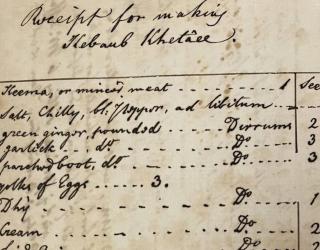 Receipt for making
Kebaub Khetâee.
Seer
Keema, or minced meat - - - - - - - 1
Salt, Chilly, bl: Pepper, ad libitum
green ginger, pounded - - - Dirrums 2
garlick - - do - - - - Do. 3
parched boot, do - - - - Do. 3
yolks of Eggs - - - - 3.
Dhy - - - - - Do. 1
Cream - - - - - Do. 2